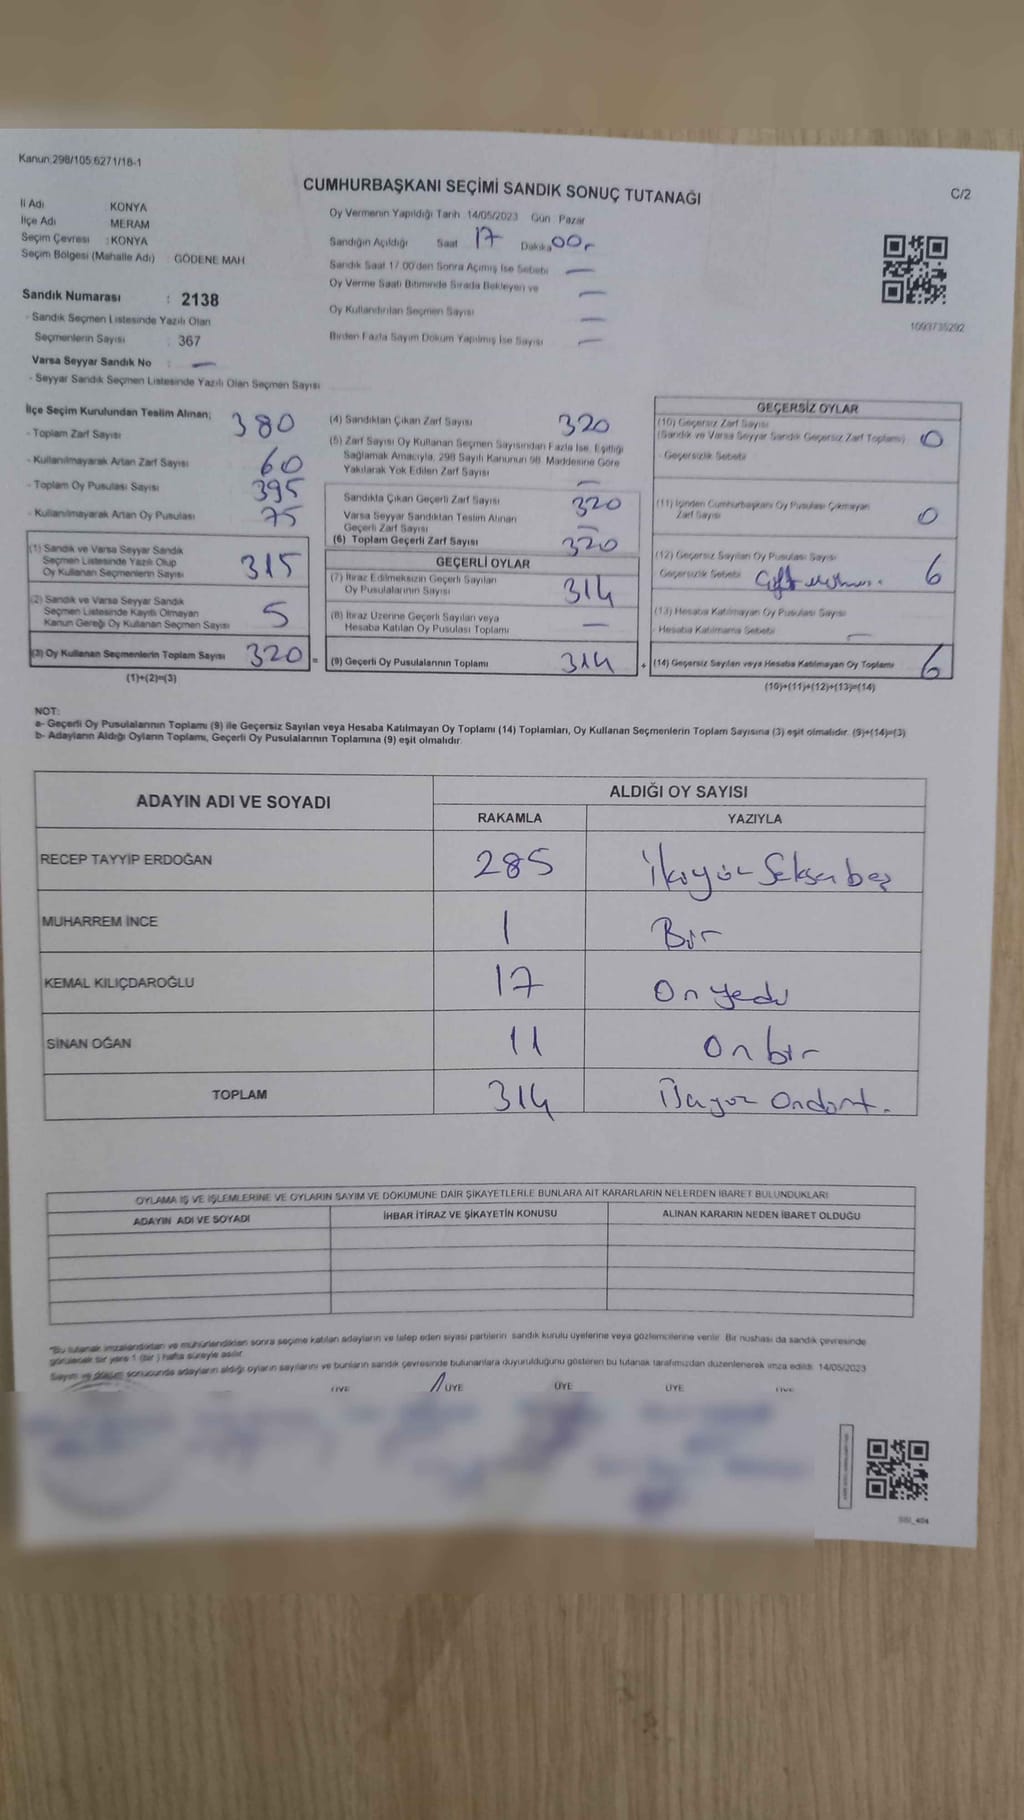 Kanun:298/105;6271/18-1
CUMHURBAŞKANI SEÇİMİ SANDIK SONUÇ TUTANAĞI
C/2
İl Adı KONYA
İlçe Adı MERAM
Seçim Çevresi : KONYA
Seçim Bölgesi (Mahalle Adı) : GÖDENE MAH.
Oy Vermenin Yapıldığı Tarih :14/05/2023 Gün : Pazar
Sandığın Açıldığı Saat 17 Dakika 00
Sandık Saat 17.00'den Sonra Açılmış İse Sebebi —
Oy Verme Saati Bitiminde Sırada Bekleyen ve —
Oy Kullandırılan Seçmen Sayısı —
Birden Fazla Sayım Döküm Yapılmış İse Sayısı —
1093735292
Sandık Numarası : 2138
- Sandık Seçmen Listesinde Yazılı Olan
Seçmenlerin Sayısı : 367
Varsa Seyyar Sandık No : —
- Seyyar Sandık Seçmen Listesinde Yazılı Olan Seçmen Sayısı
İlçe Seçim Kurulundan Teslim Alınan;
- Toplam Zarf Sayısı 380
- Kullanılmayarak Artan Zarf Sayısı 60
- Toplam Oy Pusulası Sayısı 395
- Kullanılmayarak Artan Oy Pusulası 75
(1) Sandık ve Varsa Seyyar Sandık
Seçmen Listesinde Yazılı Olup
Oy Kullanan Seçmenlerin Sayısı 315
(2) Sandık ve Varsa Seyyar Sandık
Seçmen Listesinde Kayıtlı Olmayan
Kanun Gereği Oy Kullanan Seçmen Sayısı 5
(3) Oy Kullanan Seçmenlerin Toplam Sayısı 320 =
(1)+(2)=(3)
(4) Sandıktan Çıkan Zarf Sayısı 320
(5) Zarf Sayısı Oy Kullanan Seçmen Sayısından Fazla İse, Eşitliği
Sağlamak Amacıyla, 298 Sayılı Kanunun 98. Maddesine Göre
Yakılarak Yok Edilen Zarf Sayısı —
Sandıkta Çıkan Geçerli Zarf Sayısı 320
Varsa Seyyar Sandıktan Teslim Alınan
Geçerli Zarf Sayısı —
(6) Toplam Geçerli Zarf Sayısı 320
GEÇERLİ OYLAR
(7) İtiraz Edilmeksizin Geçerli Sayılan
Oy Pusulalarının Sayısı 314
(8) İtiraz Üzerine Geçerli Sayılan veya
Hesaba Katılan Oy Pusulası Toplamı —
(9) Geçerli Oy Pusulalarının Toplamı 314 +
GEÇERSİZ OYLAR
(10) Geçersiz Zarf Sayısı
(Sandık ve Varsa Seyyar Sandık Geçersiz Zarf Toplamı) 0
- Geçersizlik Sebebi
(11) İçinden Cumhurbaşkanı Oy Pusulası Çıkmayan
Zarf Sayısı 0
(12) Geçersiz Sayılan Oy Pusulası Sayısı 6
Geçersizlik Sebebi Çift
(13) Hesaba Katılmayan Oy Pusulası Sayısı
- Hesaba Katılmama Sebebi —
(14) Geçersiz Sayılan veya Hesaba Katılmayan Oy Toplamı 6
(10)+(11)+(12)+(13)=(14)
NOT:
a- Geçerli Oy Pusulalarının Toplamı (9) ile Geçersiz Sayılan veya Hesaba Katılmayan Oy Toplamı (14) Toplamları, Oy Kullanan Seçmenlerin Toplam Sayısına (3) eşit olmalıdır. (9)+(14)=(3)
b- Adayların Aldığı Oyların Toplamı, Geçerli Oy Pusulalarının Toplamına (9) eşit olmalıdır.
ADAYIN ADI VE SOYADI
ALDIĞI OY SAYISI
RAKAMLA YAZIYLA
RECEP TAYYİP ERDOĞAN 285 İkiyüz Seksenbeş
MUHARREM İNCE 1 Bir
KEMAL KILIÇDAROĞLU 17 Onyedi
SİNAN OĞAN 11 Onbir
TOPLAM 314 Üçyüz Ondört.
OYLAMA İŞ VE İŞLEMLERİNE VE OYLARIN SAYIM VE DÖKÜMÜNE DAİR ŞİKAYETLERLE BUNLARA AİT KARARLARIN NELERDEN İBARET BULUNDUKLARI
ADAYIN ADI VE SOYADI İHBAR İTİRAZ VE ŞİKAYETİN KONUSU ALINAN KARARIN NEDEN İBARET OLDUĞU
"Bu tutanak imzalandıktan ve mühürlendikten sonra seçime katılan adayların ve talep eden siyasi partilerin sandık kurulu üyelerine veya gözlemcilerine verilir. Bir nushası da sandık çevresinde
görülecek bir yere 1 (bir) hafta süreyle asılır.
Sayım ve döküm sonucunda adayların aldığı oyların sayılarını ve bunların sandık çevresinde bulunanlara duyurulduğunu gösteren bu tutanak tarafımızdan düzenlenerek imza edildi. 14/05/2023
ÜYE ÜYE ÜYE ÜYE ÜYE